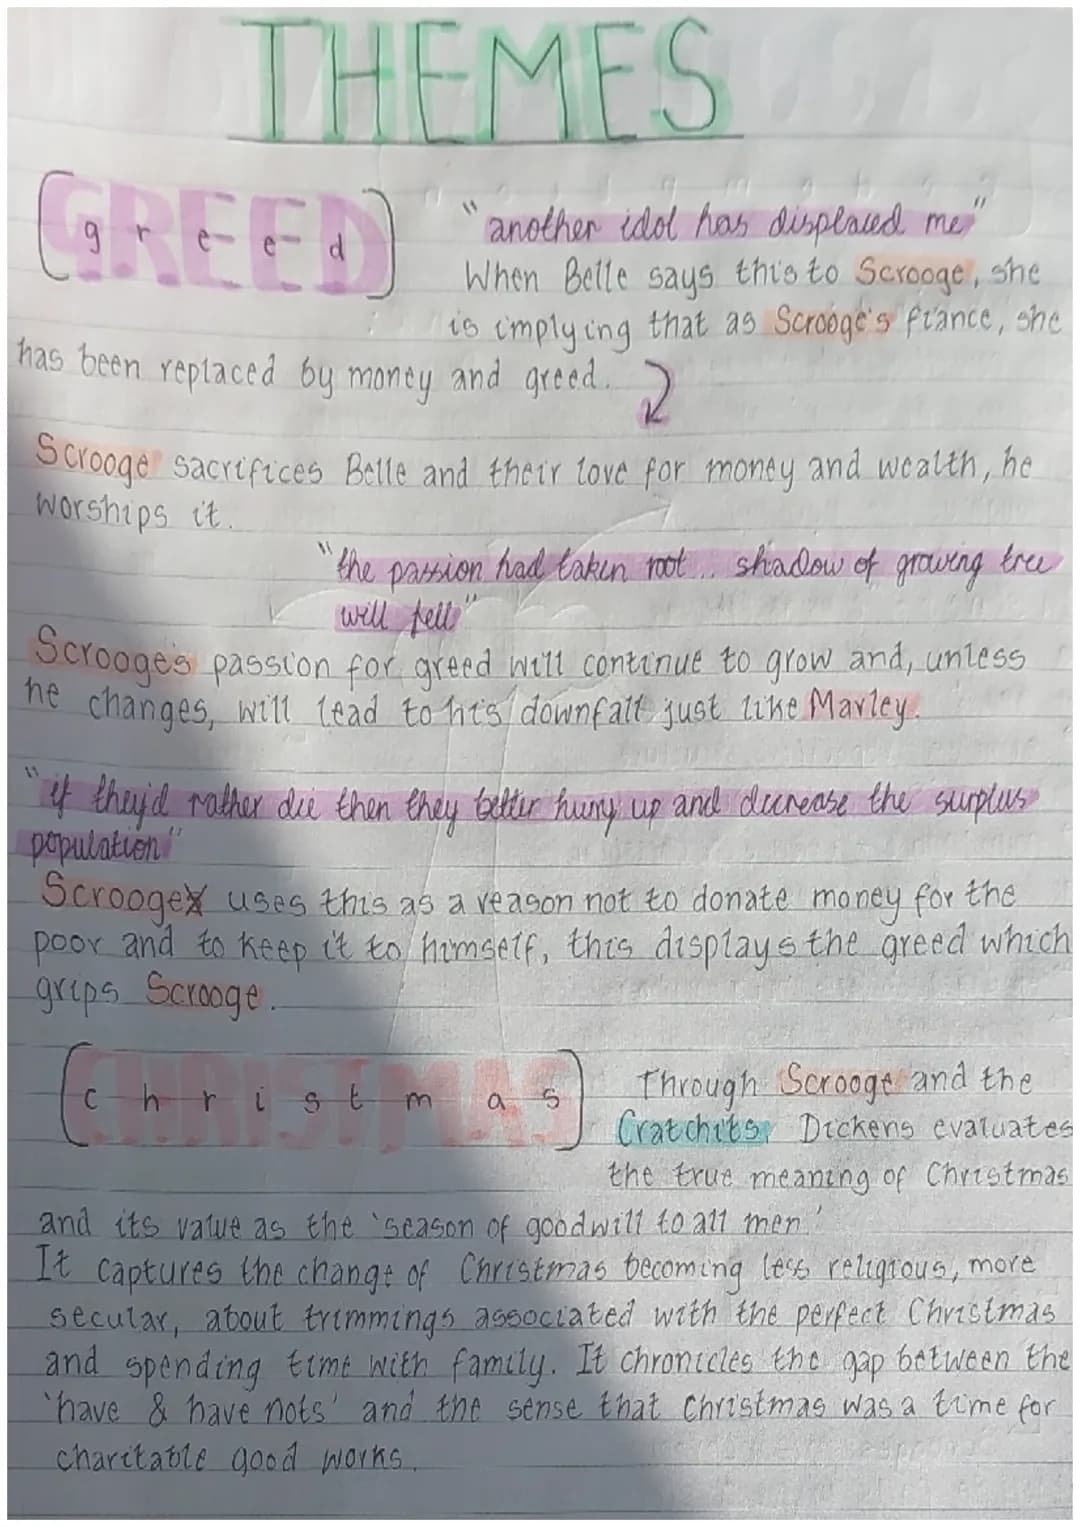 THEMES
GREED
greed
"another idol has displaced me"
When Belle says this to Scrooge, she
is implying that as Scrooge's fiance, she
has been replaced by money and greed.
Scrooge sacrifices Belle and their love for money and wealth, he
worships it.
"the passion had taken root... shadow of growing tree
will fell"
Scrooge's passion for greed will continue to grow and, unless
he changes, will lead to his downfall just like Marley.
"if they'd rather die then they better hurry up and decrease the surplus
population"
Scrooge uses this as a reason not to donate money for the
poor and to keep it to himself, this displays the greed which
grips Scrooge.
CHRISTMAS
christmas
Through Scrooge and the
Cratchits, Dickens evaluates
the true meaning of Christmas
and its value as the 'season of goodwill to all men'
It captures the change of Christmas becoming less religious, more
secular, about trimmings associated with the perfect Christmas
and spending time with family. It chronicles the gap between the
'have & have nots' and the sense that Christmas was a time for
charitable good works.